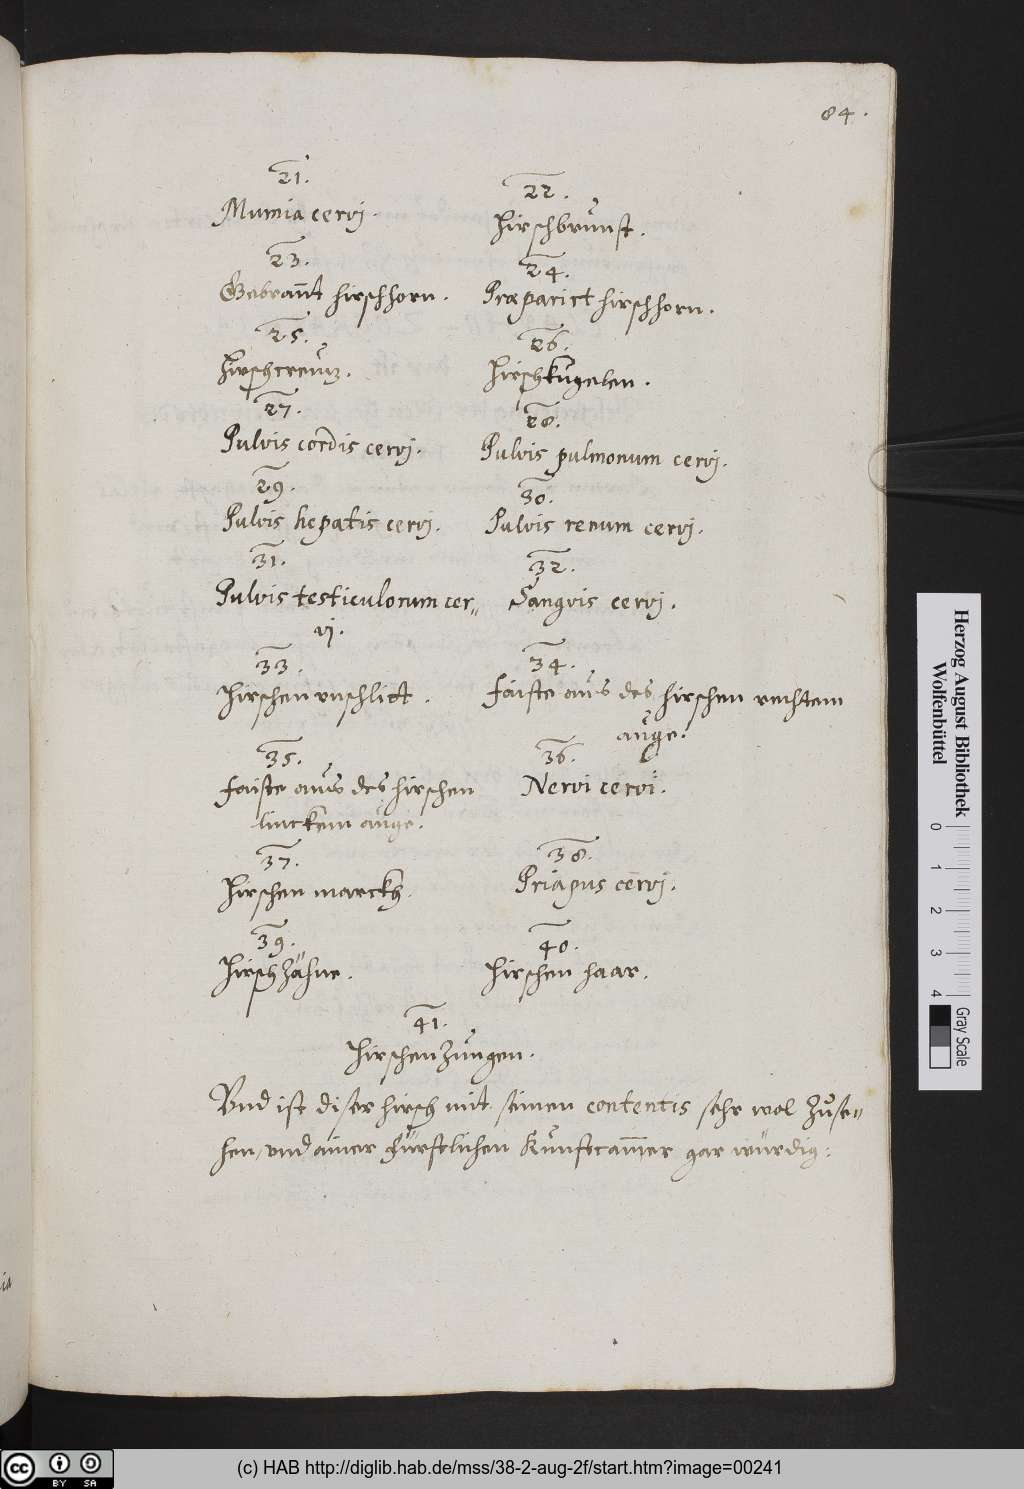 84.
21.
Mumia cervj.
22.
Hirschbrunst.
23.
Gebrannt hirschhorn.
24.
Præparirt hirschhorn.
25.
Hirschcreutz.
26.
Hirschkugelen.
27.
Pulvis cordis cervj.
28.
Pulvis pulmonum cervj.
29.
Pulvis hepatis cervj.
30.
Pulvis renum cervj.
31.
Pulvis testiculorum cer„
vj.
32.
Sangvis cervj.
33.
Hirschen vnschlitt.
34.
Faiste aus des hirschen rechtem
auge.
35.
Faiste aus des hirschen
linckem auge.
36.
Nervi cervi.
37.
Hirschen marckh.
38.
Priapus cervj.
39.
Hirschzähne.
40.
Hirschen haar.
41.
Hirschenzungen.
Vnd ist diser hirsch mit seinen contentis sehr wol zuse„
hen, vnd ainer fürstlichen Kunstcam̃er gar würdig:
ia
Herzog August Bibliothek
Wolfenbüttel
0 1 2 3 4
Gray Scale
cc BY SA
(c) HAB http://diglib.hab.de/mss/38-2-aug-2f/start.htm?image=00241